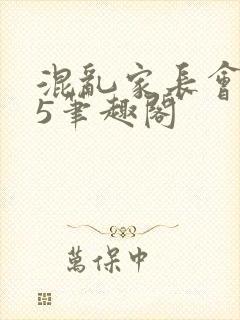 混亂家長會
5筆趣閣
萬保中